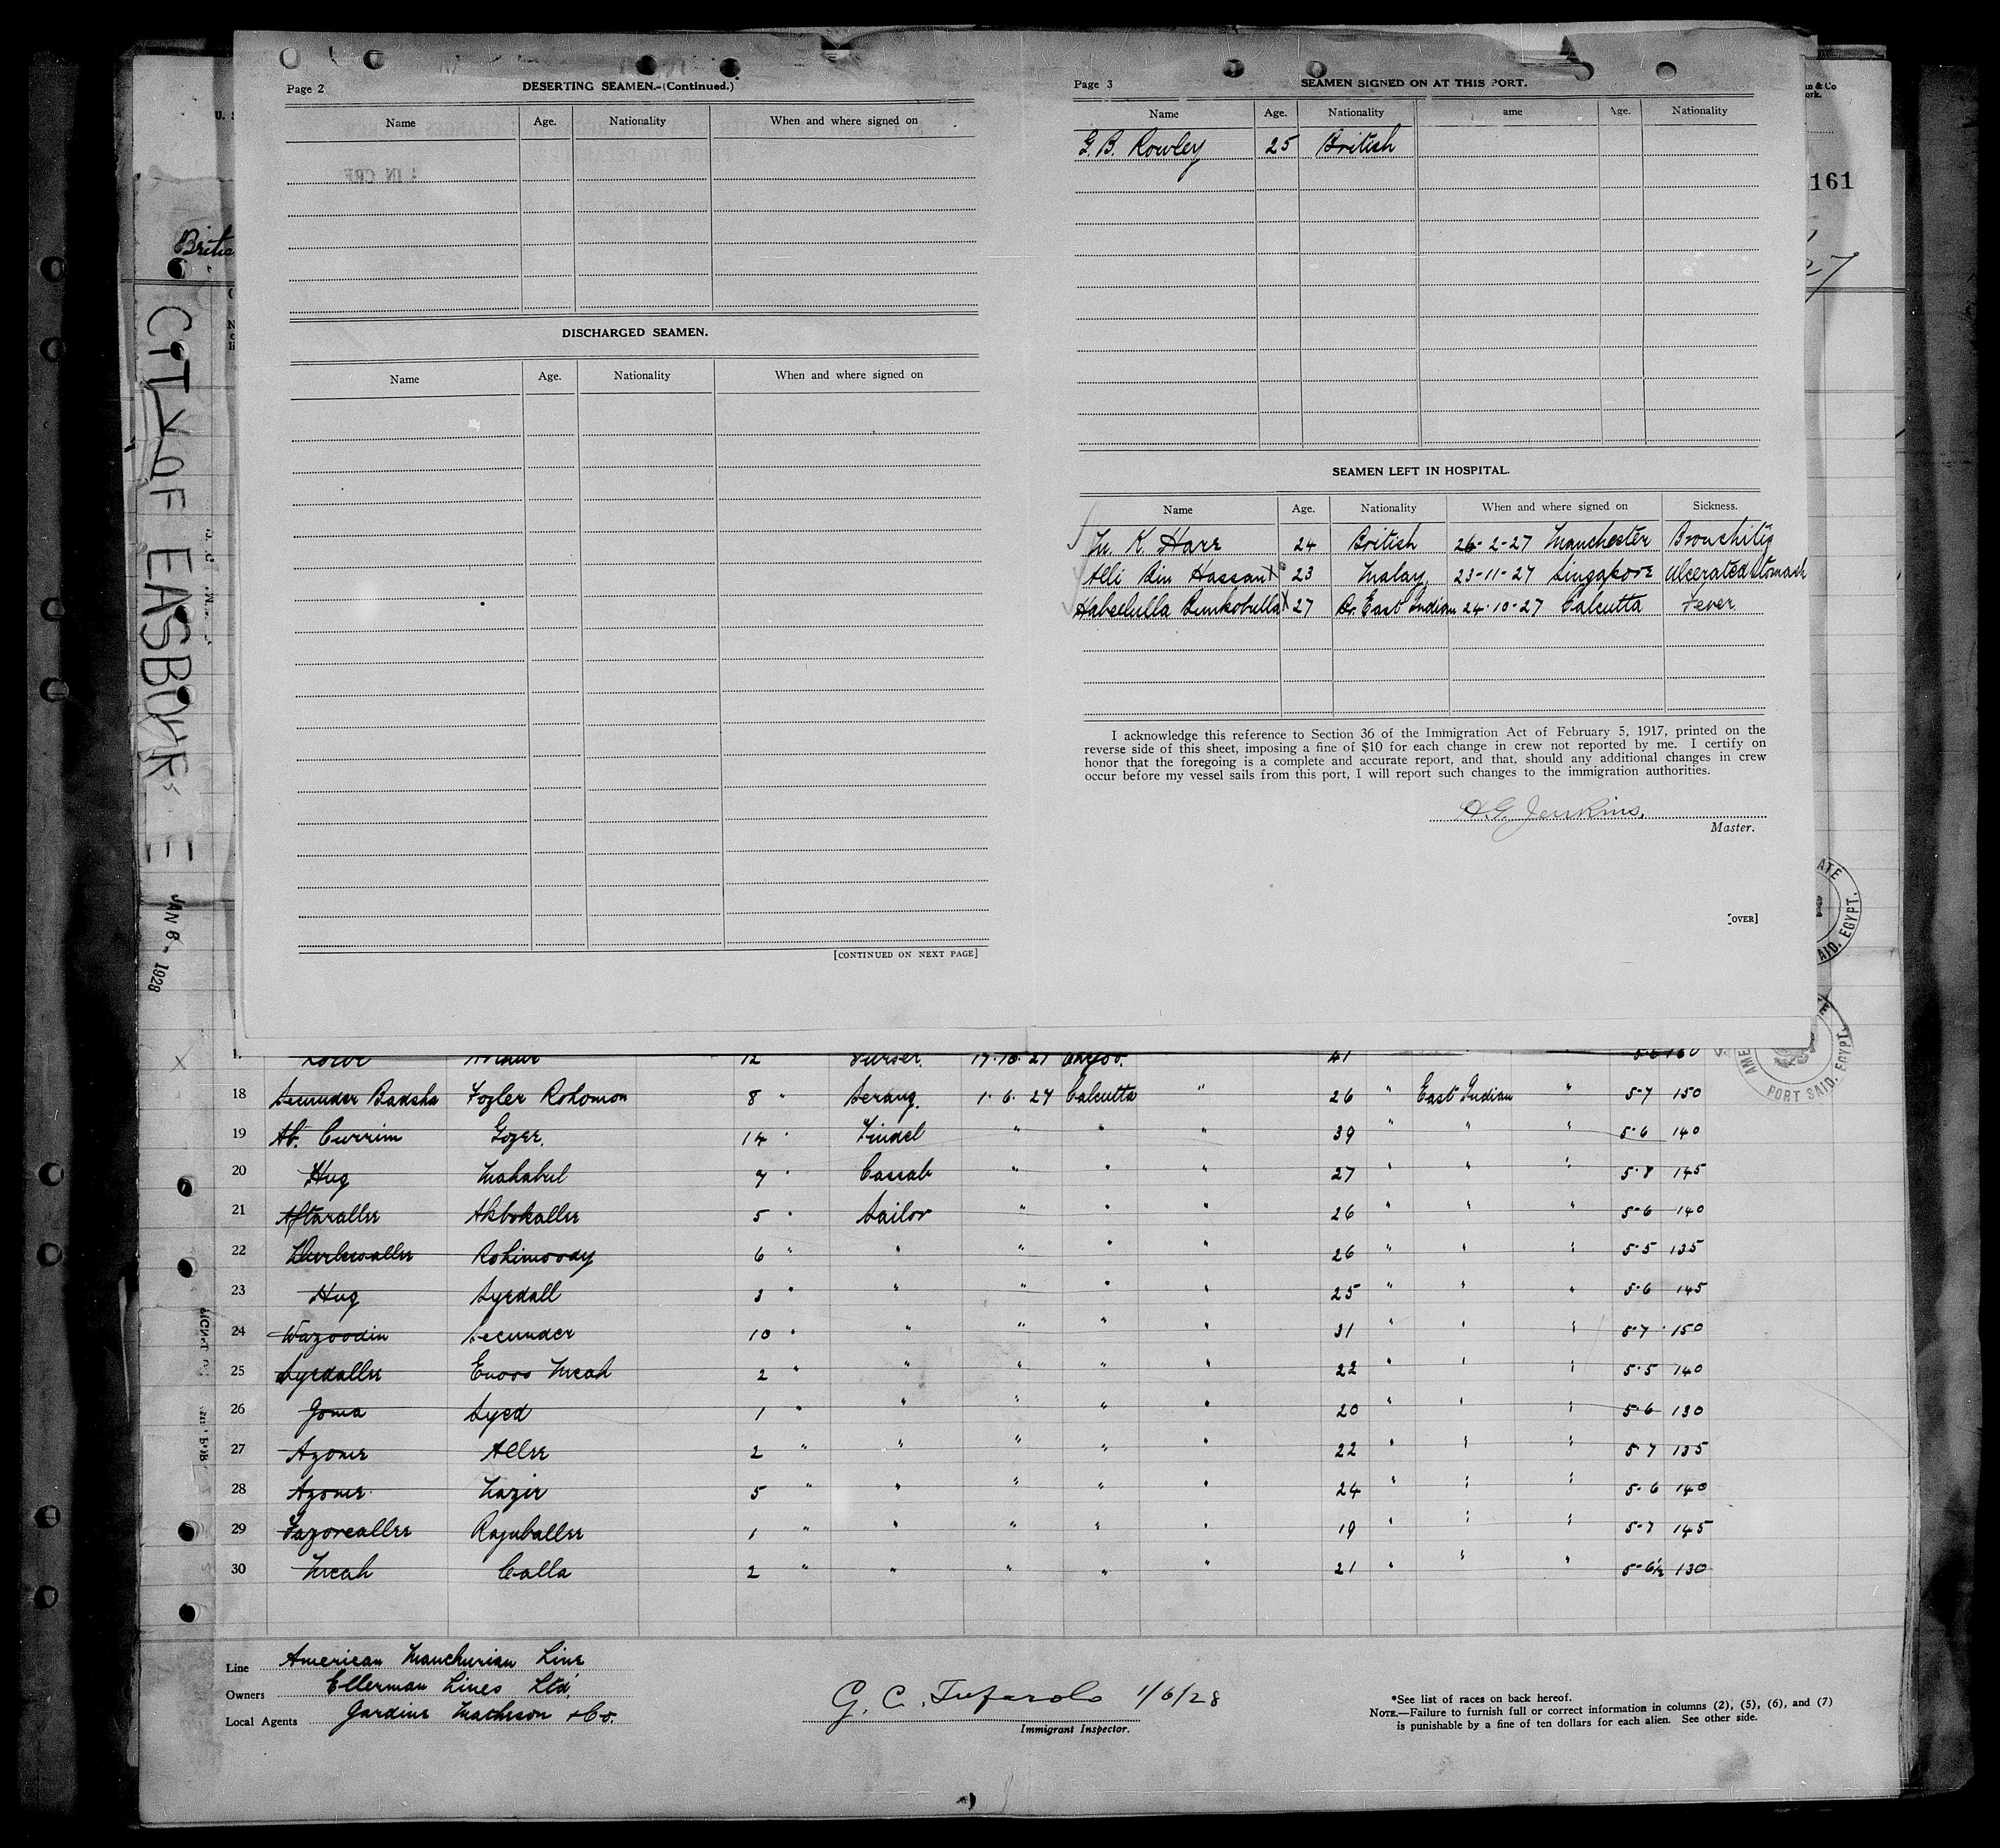 Page 2
DESERTING SEAMEN.-(Continued.)
Name Age. Nationality When and where signed on
DISCHARGED SEAMEN.
Name Age. Nationality When and where signed on
[CONTINUED ON NEXT PAGE]
Page 3
SEAMEN SIGNED ON AT THIS PORT.
Name Age. Nationality ame Age. Nationality
G. B. Rowley 25 British
SEAMEN LEFT IN HOSPITAL.
Name Age. Nationality When and where signed on Sickness.
M. K. Hare 24 British 26-2-27 Manchester Bronchitis
Alli Bin Hassan 23 Malay 23-11-27 Singapore Ulcerated Stomach
27 Br. East Indian 24-10-27 Calcutta Fever
I acknowledge this reference to Section 36 of the Immigration Act of February 5, 1917, printed on the
reverse side of this sheet, imposing a fine of $10 for each change in crew not reported by me. I certify on
honor that the foregoing is a complete and accurate report, and that, should any additional changes in crew
occur before my vessel sails from this port, I will report such changes to the immigration authorities.
H. G. Jenkins.
Master.
[OVER]
161
CITY OF EASBOURNE
JAN 6 - 1928
PORT SAID. EGYPT.
18 Secunder Badsha Fozler Rohomon 8 " Serang. 1. 6. 27 Calcutta " 26 " East Indian " 5-7 150
19 Ab. Currim Gozee. 14 " Tindel " " " 39 " " " 5-6 140
20 Hug Mahabul 7 " Cassab " " " 27 " " " 5-8 145
21 Aftarallee Akbokallee 5 " Sailor " " " 26 " " " 5-6 140
22 Rohimoody 6 " " " " " 26 " " " 5-5 135
23 Hug Syedall 3 " " " " " 25 " " " 5-6 145
24 Wazoodin Secunder 10 " " " " " 31 " " " 5-7 150
25 Syedallee Enoos Meah 2 " " " " " 22 " " " 5-5 140
26 Goma Syed 1 " " " " " 20 " " " 5-6 130
27 Azomr Allee 2 " " " " " 22 " " " 5-7 135
28 Azomr Nazir 5 " " " " " 24 " " " 5-6 140
29 Fazorallee Rajuballee 1 " " " " " 19 " " " 5-7 145
30 Meah Calla 2 " " " " " 21 " " " 5-6½ 130
Line American Manchurian Line
Owners Ellerman Lines Ltd.
Local Agents Jardine Matheson & Co.
G. C. Tufarolo 1/6/28
Immigrant Inspector.
*See list of races on back hereof.
NOTE.—Failure to furnish full or correct information in columns (2), (5), (6), and (7)
is punishable by a fine of ten dollars for each alien. See other side.